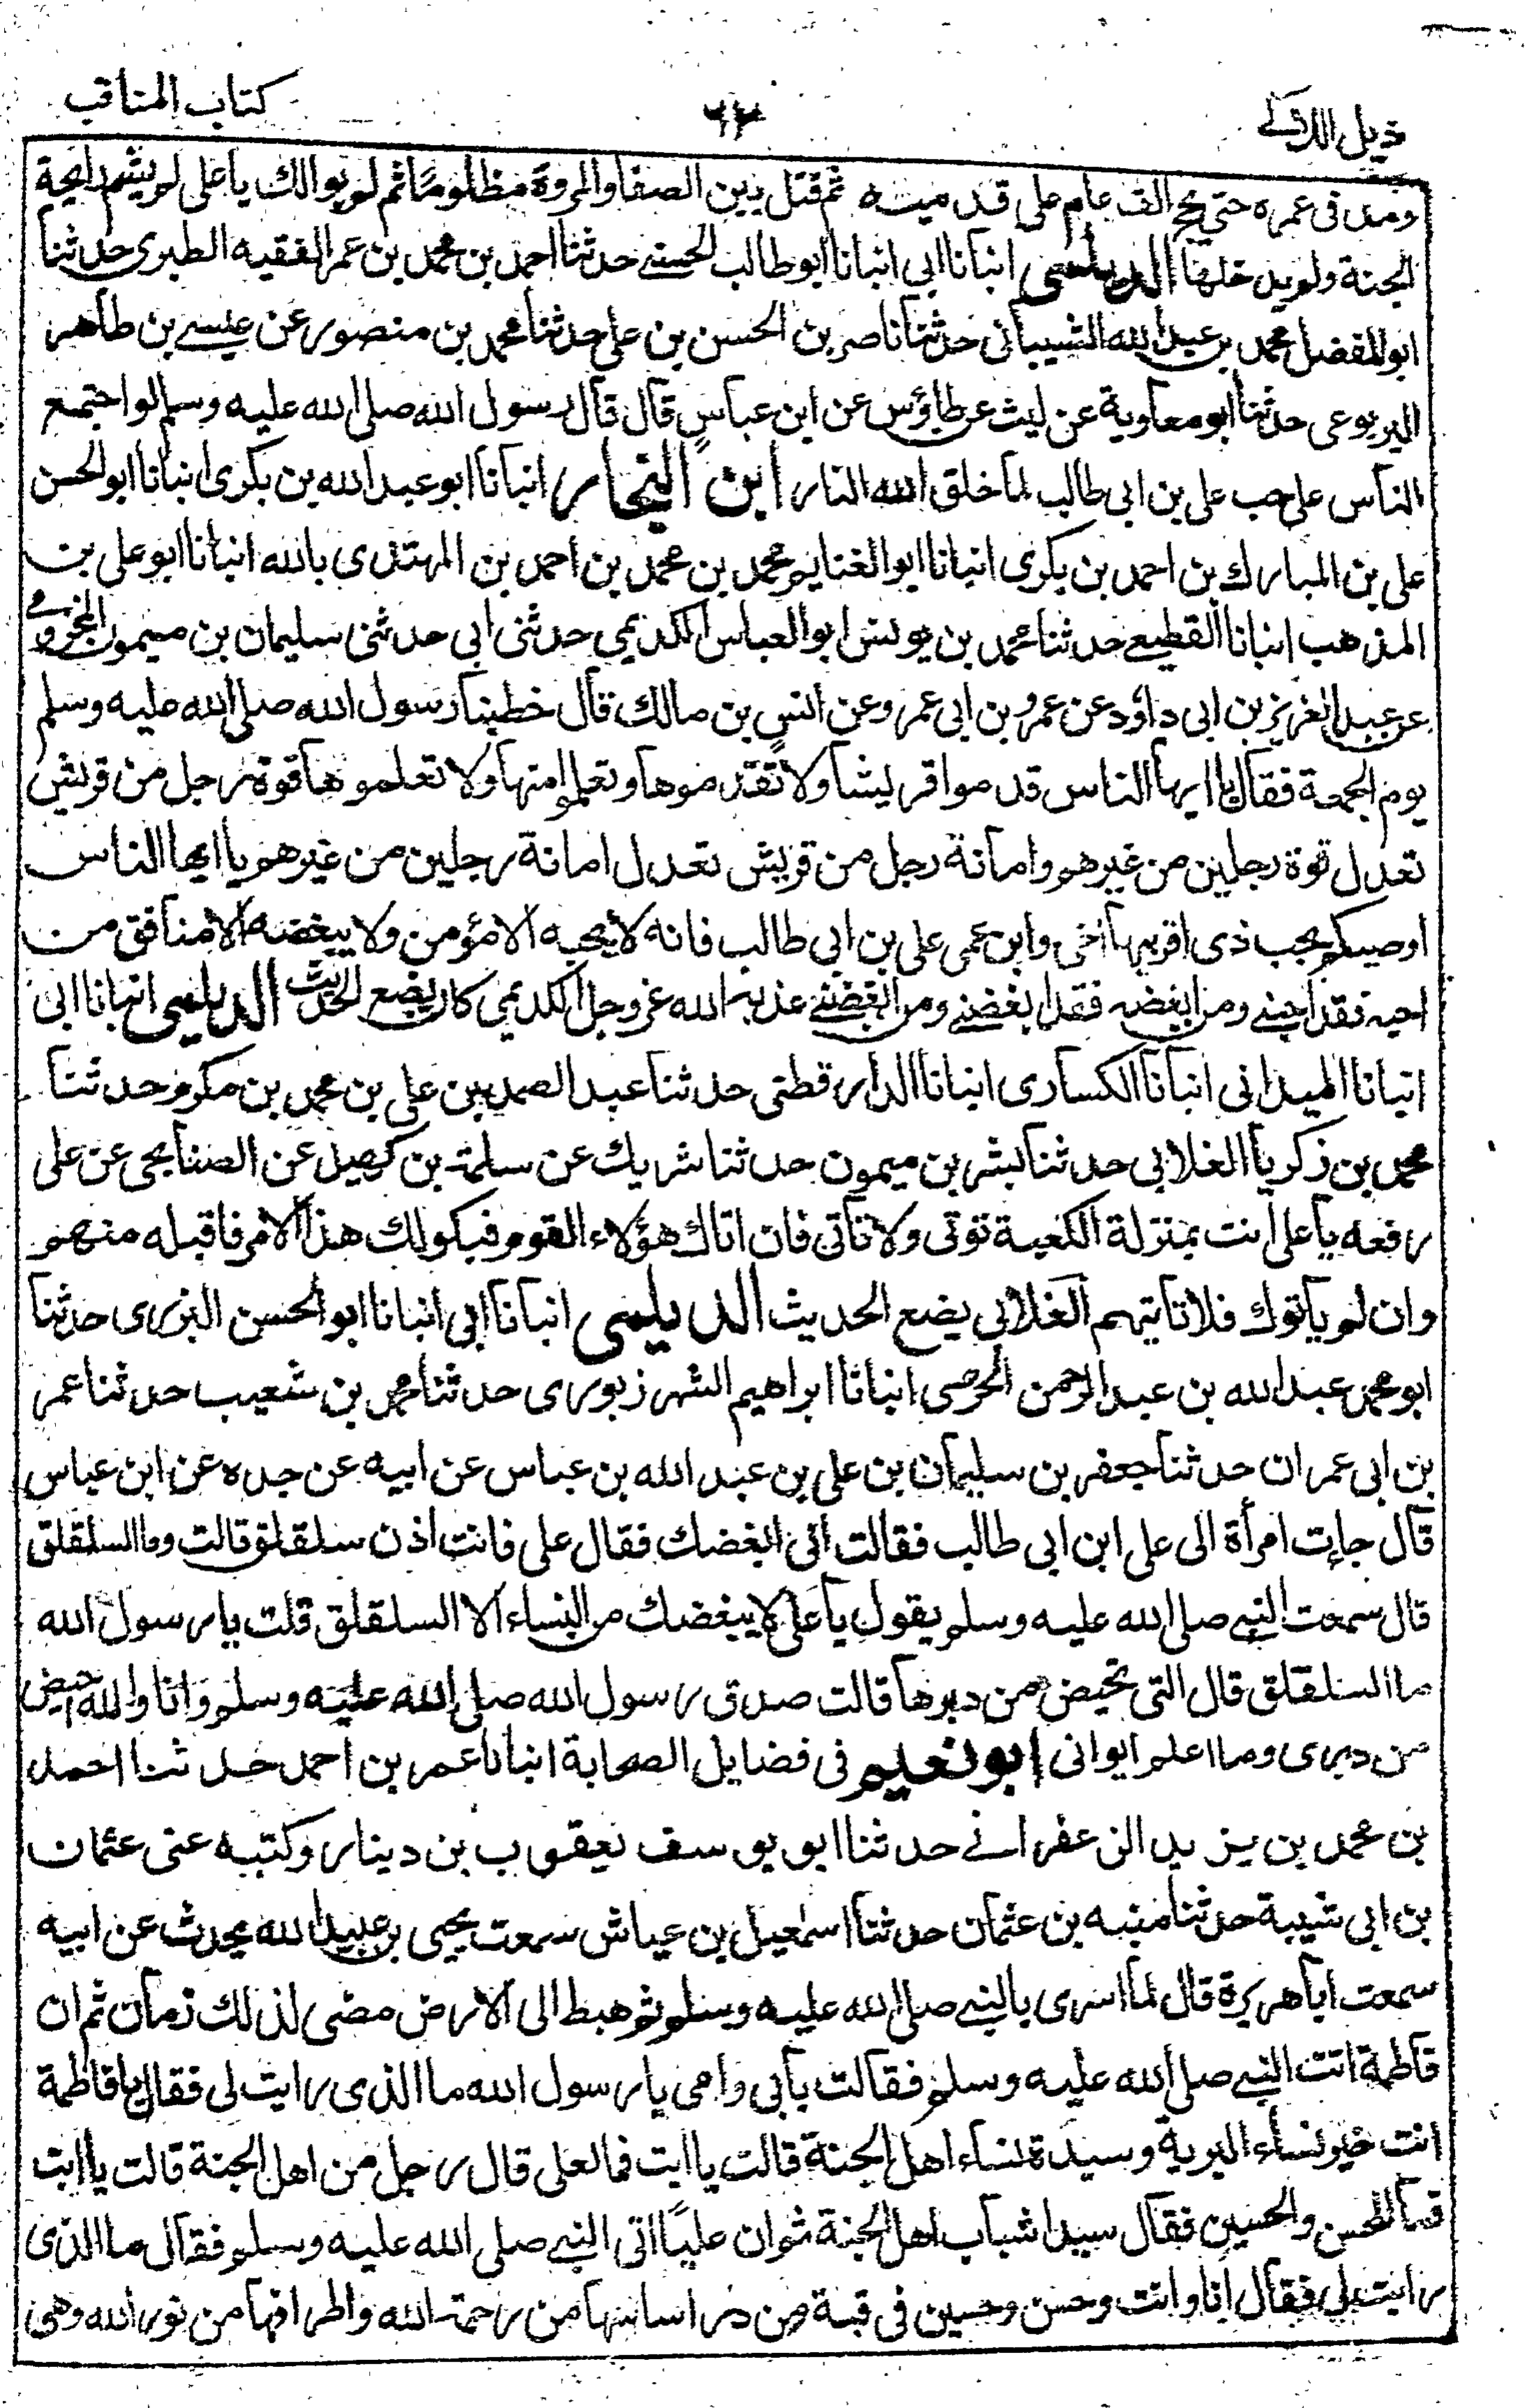 ذيل اللآلی
٦٢
كتاب المناقب
ومد فی عمره حتى يحج الف عام علی قدميه ثم قتل بين الصفا والمروة مظلوما ثم لم يوالك يا علی لم يشم رايحة
الجنة ولم يدخلها الديلمی انبانا ابی انبانا ابو طالب الحسنے حدثنا احمد بن محمد بن عمر الفقيه الطبری حدثنا
ابو المفضل محمد بن عبد الله الشيبانی حدثنا ناصر بن الحسن بن علی حدثنا محمد بن منصور عن عيسے بن طاهر
اليربوعی حدثنا ابو معاوية عن ليث عن طاؤس عن ابن عباس قال قال رسول الله صلی الله عليه وسلم لو اجتمع
الناس علی حب علی بن ابی طالب لما خلق الله النار ابن النجار انبانا ابو عبد الله بن بكری انبانا ابو الحسن
علی بن المبارك بن احمد بن بكری انبانا ابو الغنايم محمد بن محمد بن احمد بن المهتدی بالله انبانا ابو علی بن
المذهب انبانا القطيعے حدثنا محمد بن يونس ابو العباس الكديمی حدثنی ابی حدثنی سليمان بن ميمون المخزومے
عن عبد العزيز بن ابی داؤد عن عمرو بن ابی عمرو عن انس بن مالك قال خطبنا رسول الله صلی الله عليه وسلم
يوم الجمعة فقال يا ايها الناس قدموا قريشا ولا تقدموها وتعلموا منها ولا تعلموها قوة رجل من قريش
تعدل قوة رجلين من غيرهم وامانة رجل من قريش تعدل امانة رجلين من غيرهم يا ايها الناس
اوصيكم بحب ذی اقربيها اخی وابن عمی علی بن ابی طالب فانه لا يحبه الا مؤمن ولا يبغضه الا منافق من
احبه فقد احبنے ومن ابغضه فقد ابغضنے ومن ابغضنے عذبه الله عز وجل الكديمی كان يضع الحديث الديلمی انبانا ابی
انبانا الميدانی انبانا الكساری انبانا الدارقطنی حدثنا عبد الصمد بن علی بن محمد بن مكرم حدثنا
محمد بن زكريا الغلابی حدثنا بشر بن ميمون حدثنا شريك عن سلمة بن كهيل عن الصنابحی عن علی
رفعه يا علی انت بمنزلة الكعبة توتی ولا تاتی فان اتاك هؤلاء القوم فبكو لك هذا الامر فاقبله منهم
وان لم ياتوك فلا تاتيهم الغلابی يضع الحديث الديلمی انبانا ابی انبانا ابو الحسن البزری حدثنا
ابو محمد عبد الله بن عبد الرحمن الحرصی انبانا ابراهيم الشهرزوری حدثنا محمد بن شعيب حدثنا عمر
بن ابی عمران حدثنا جعفر بن سليمان بن علی بن عبد الله بن عباس عن ابيه عن جده عن ابن عباس
قال جاءت امرأة الی علی ابن ابی طالب فقالت انی ابغضك فقال علی فانت اذن سلقلق قالت وما السلقلق
قال سمعت النبے صلی الله عليه وسلم يقول يا علی لا يبغضك من النساء الا السلقلق قلت يا رسول الله
ما السلقلق قال التی تحيض من دبرها قالت صدق رسول الله صلی الله عليه وسلم وانا والله احيض
من دبری وما اعلم ابوانی ابو نعيم فی فضايل الصحابة انبانا عمر بن احمد حدثنا احمد
بن محمد بن يزيد الزعفرانے حدثنا ابو يوسف يعقوب بن دينار وكتبه عنی عثمان
بن ابی شيبة حدثنا منبه بن عثمان حدثنا اسمعيل بن عياش سمعت يحيی بن عبيد الله يحدث عن ابيه
سمعت ابا هريرة قال لما اسری بالنبے صلی الله عليه وسلم ثم هبط الی الارض مضی لذلك زمان ثم ان
فاطمة اتت النبے صلی الله عليه وسلم فقالت بابی وامی يا رسول الله ما الذی رايت لی فقال يا فاطمة
انت خير نساء البرية وسيدة نساء اهل الجنة قالت يا ابت فما لعلی قال رجل من اهل الجنة قالت يا ابت
فما للحسن والحسين فقال سيدا شباب اهل الجنة ثم ان عليا اتی النبے صلی الله عليه وسلم فقال ما الذی
رايت لی فقال انا وانت وحسن وحسين فی قبة من در اساسها من رحمة الله واطرافها من نور الله وهی